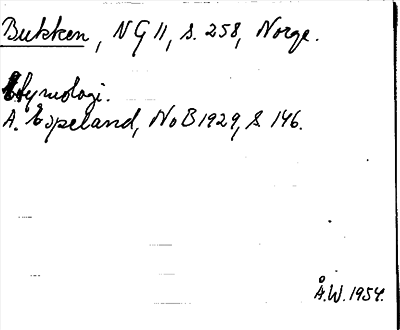 Bukken, NG 11, s. 258, Norge.
Etymologi.
A. Espeland, NoB 1929, s 146.
Å.W. 1954.